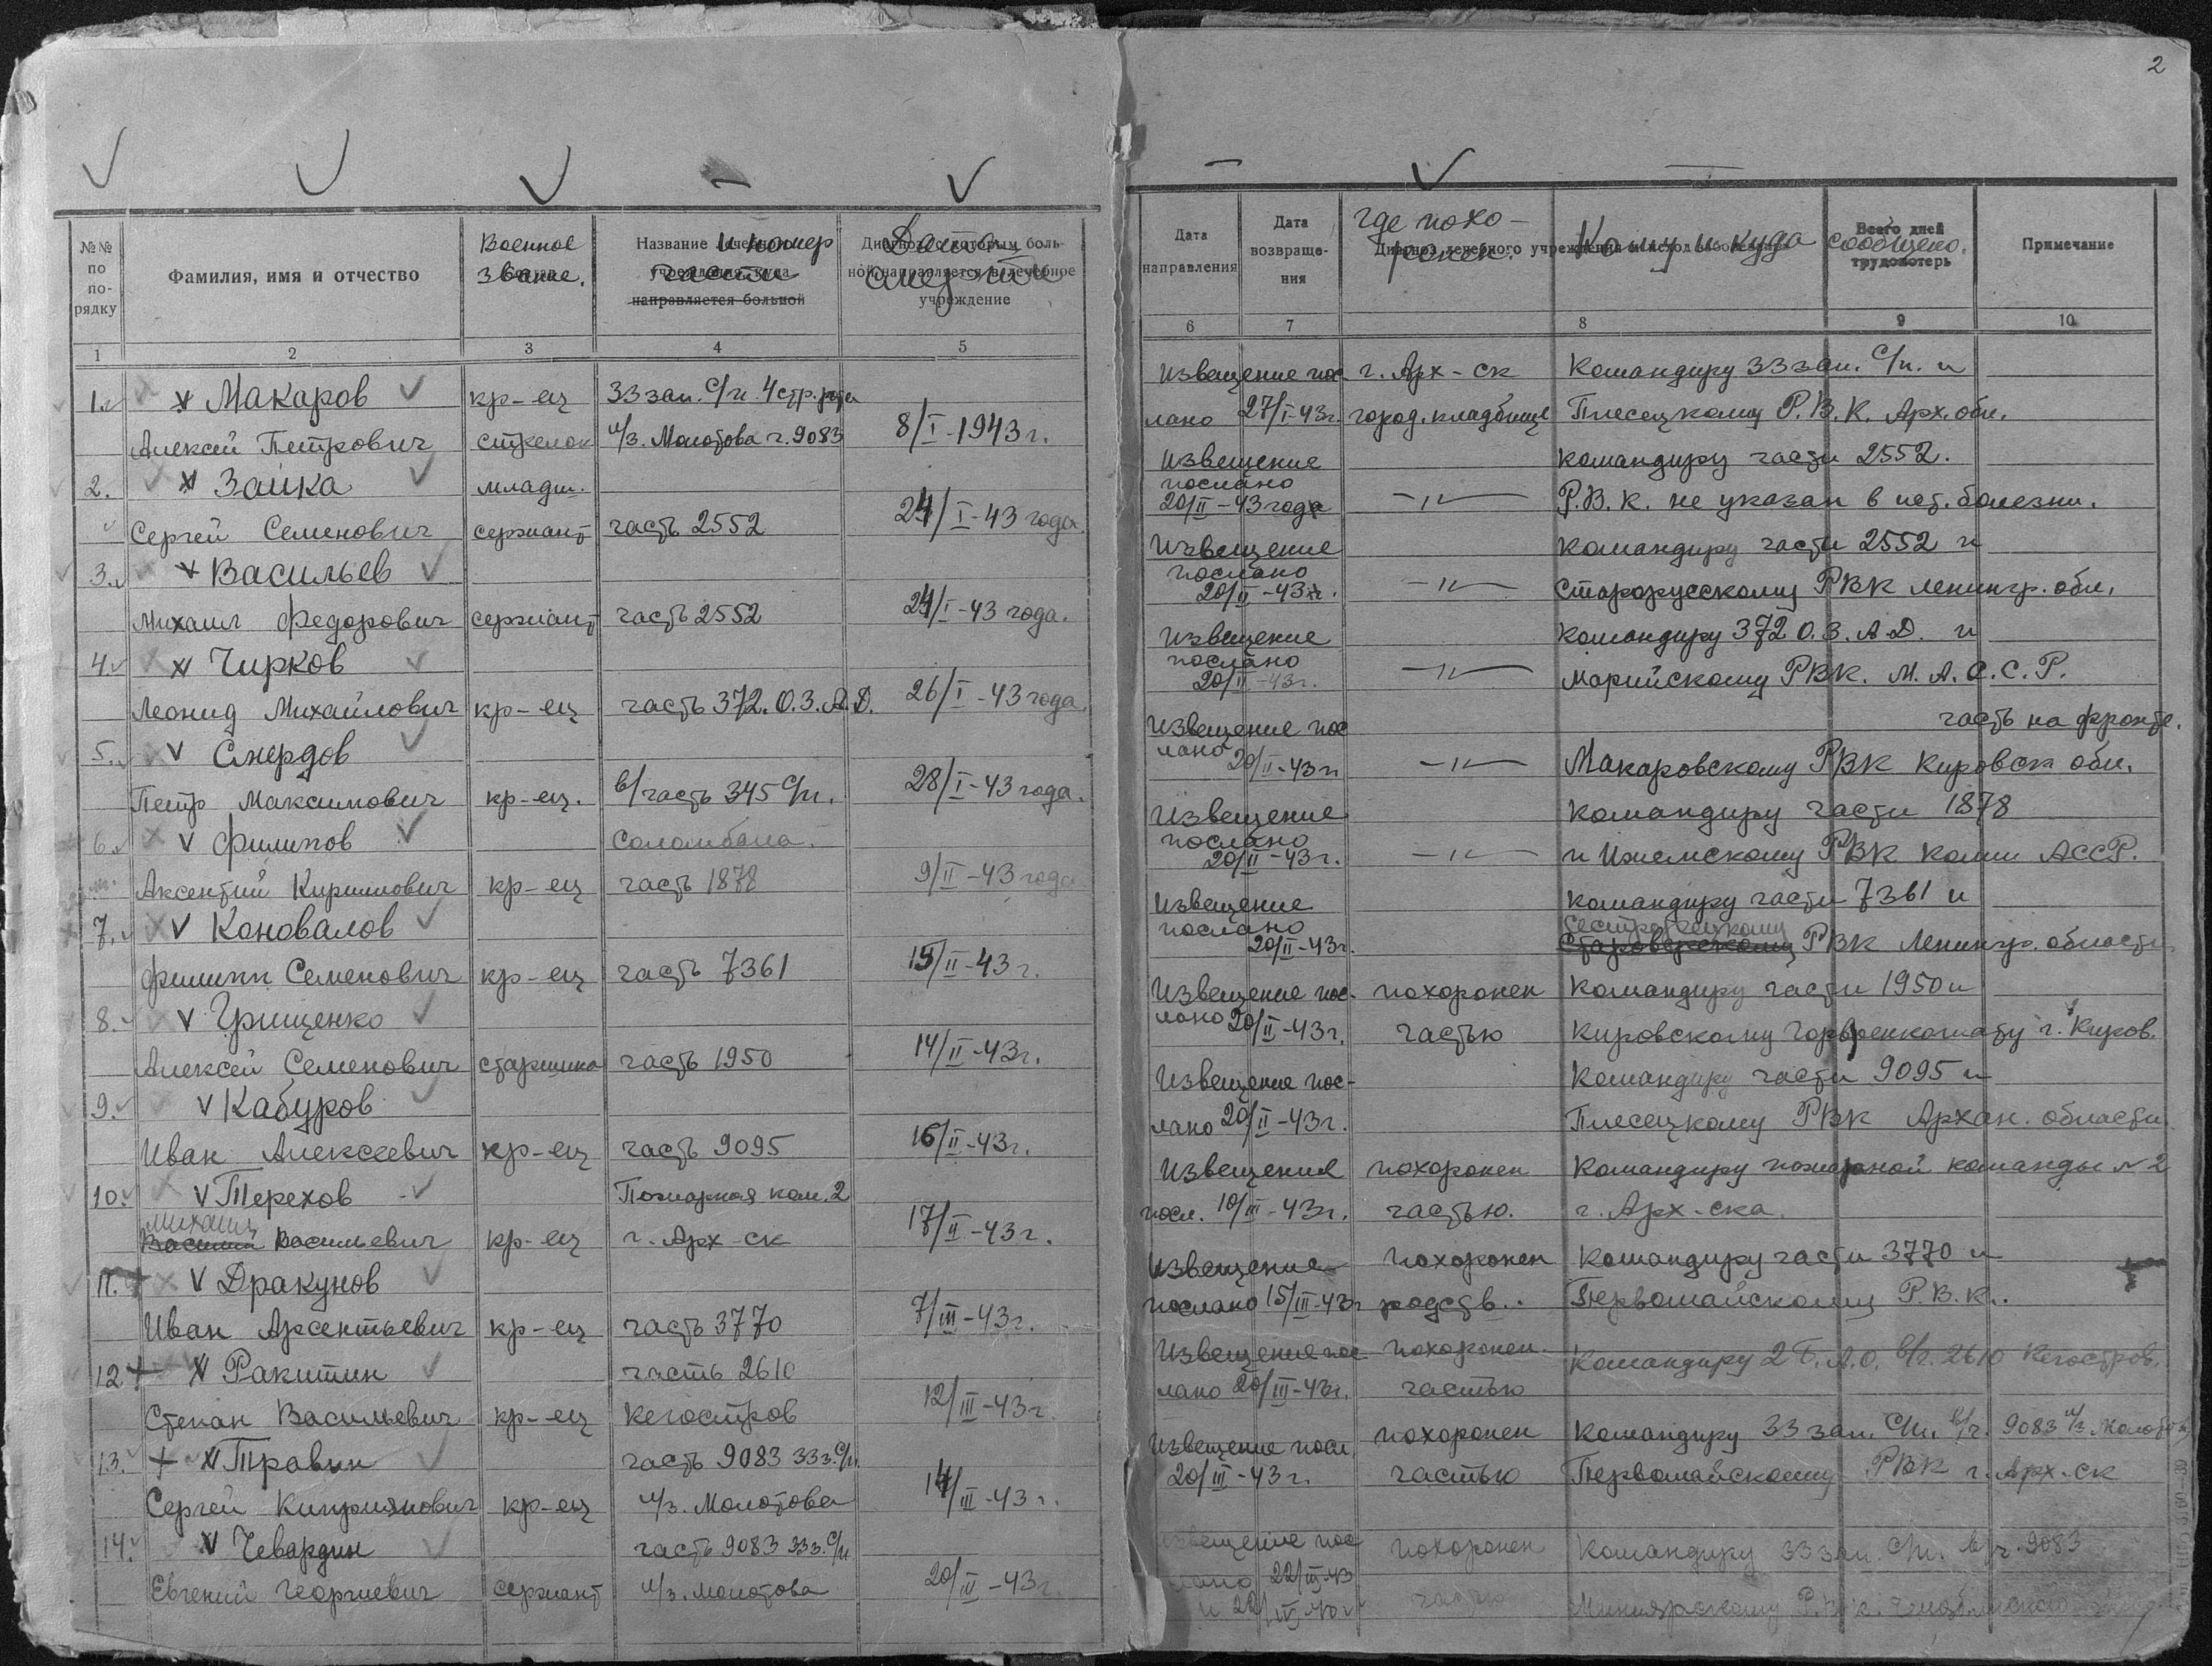 2
№№ по по-рядку
Фамилия, имя и отчество
Военное звание.
Название и номер части
направляется больной
Дата смерти
Диагноз, с которым боль-
ной направляется в лечебное
учреждение
1 2 3 4 5
1. Макаров кр-ец 33 зап. с/п. 4 стр. рота
Алексей Петрович стрелок и/з. Молотова г. 9083 8/I-1943 г.
2. Зайка младш.
Сергей Семенович сержант часть 2552 24/I-43 года.
3. Васильев
Михаил Федорович сержант часть 2552 24/I-43 года.
4. Чирков
Леонид Михайлович кр-ец часть 372. О.З.А.Д. 26/I-43 года.
5. Смердов
Петр Максимович кр-ец. в/часть 345 с/п. 28/I-43 года.
6. Филипов Соломбала.
Аксентий Кириллович кр-ец часть 1878 9/II-43 года
7. Коновалов
Филипп Семенович кр-ец часть 7361 15/II-43 г.
8. Грищенко
Алексей Семенович старшина часть 1950 14/II-43г.
9. Кабуров
Иван Алексеевич кр-ец часть 9095 16/II-43г.
10. Терехов Пожарная ком. 2
Михаил
Василий Васильевич кр-ец г. Арх-ск 17/II-43г.
11. Дракунов
Иван Арсентьевич кр-ец часть 3770 7/III-43г.
12 Ракитин часть 2610
Степан Васильевич кр-ец Кегостров 12/III-43г.
13. Травин часть 9083 33 з. с/п.
Сергей Киприянович кр-ец и/з. Молотова 14/III-43 г.
14. Чевардин часть 9083 33 з. с/п
Евгений Георгиевич сержант и/з. Молотова 20/III-43г.
Дата направления
Дата возвраще-ния
где похо-
ронен.
Кому и куда сообщено.
Всего дней
трудопотерь
Примечание
6 7 8 9 10
Извещение пос- г. Арх-ск Командиру 33 зап. с/п. и
лано 27/I-43г. город. кладбище Плесецкому Р.В.К. Арх. обл.
Извещение командиру части 2552.
послано
20/II-43 года -"- Р.В.К. не указан в ист. болезни.
Извещение командиру части 2552 и
послано
20/II-43г. -"- Старорусскому РВК Ленингр. обл.
Извещение командиру 372 О.З.А.Д. и
послано
20/II-43г. -"- Марийскому РВК. М.А.С.С.Р.
Извещение пос часть на фронте.
лано 20/II-43г -"- Макаровскому РВК Кировск обл.
Извещение командиру части 1878
послано
20/II-43г. -"- и Ижемскому РВК Коми АССР.
Извещение командиру части 7361 и
послано Сестрорецкому
20/II-43г. РВК Ленингр. области
Извещение пос- похоронен командиру части 1950 и
лано 20/II-43г. частью Кировскому Горвоенкомату г. Киров.
Извещение пос- командиру части 9095 и
лано 20/II-43г. Плесецкому РВК Архан. области
Извещение похоронен командиру пожарной команды № 2
посл. 10/III-43г. частью. г. Арх-ска.
Извещение похоронен командиру части 3770 и
послано 15/III-43г родств.. Первомайскому Р.В.К..
Извещение пос похоронен. командиру 2 б. А.О. в/ч. 2610 Кегостров.
лано 20/III-43г. частью
Извещение посл. похоронен командиру 33 зап. с/п. в/ч. 9083 и/з. Молотова
20/III-43г. частью Первомайскому РВК г. Арх-ск
Извещение пос похоронен командиру 33 зап. с/п. в/ч. 9083
лано 22/III-43 частью Миньярскому Р.В.К.